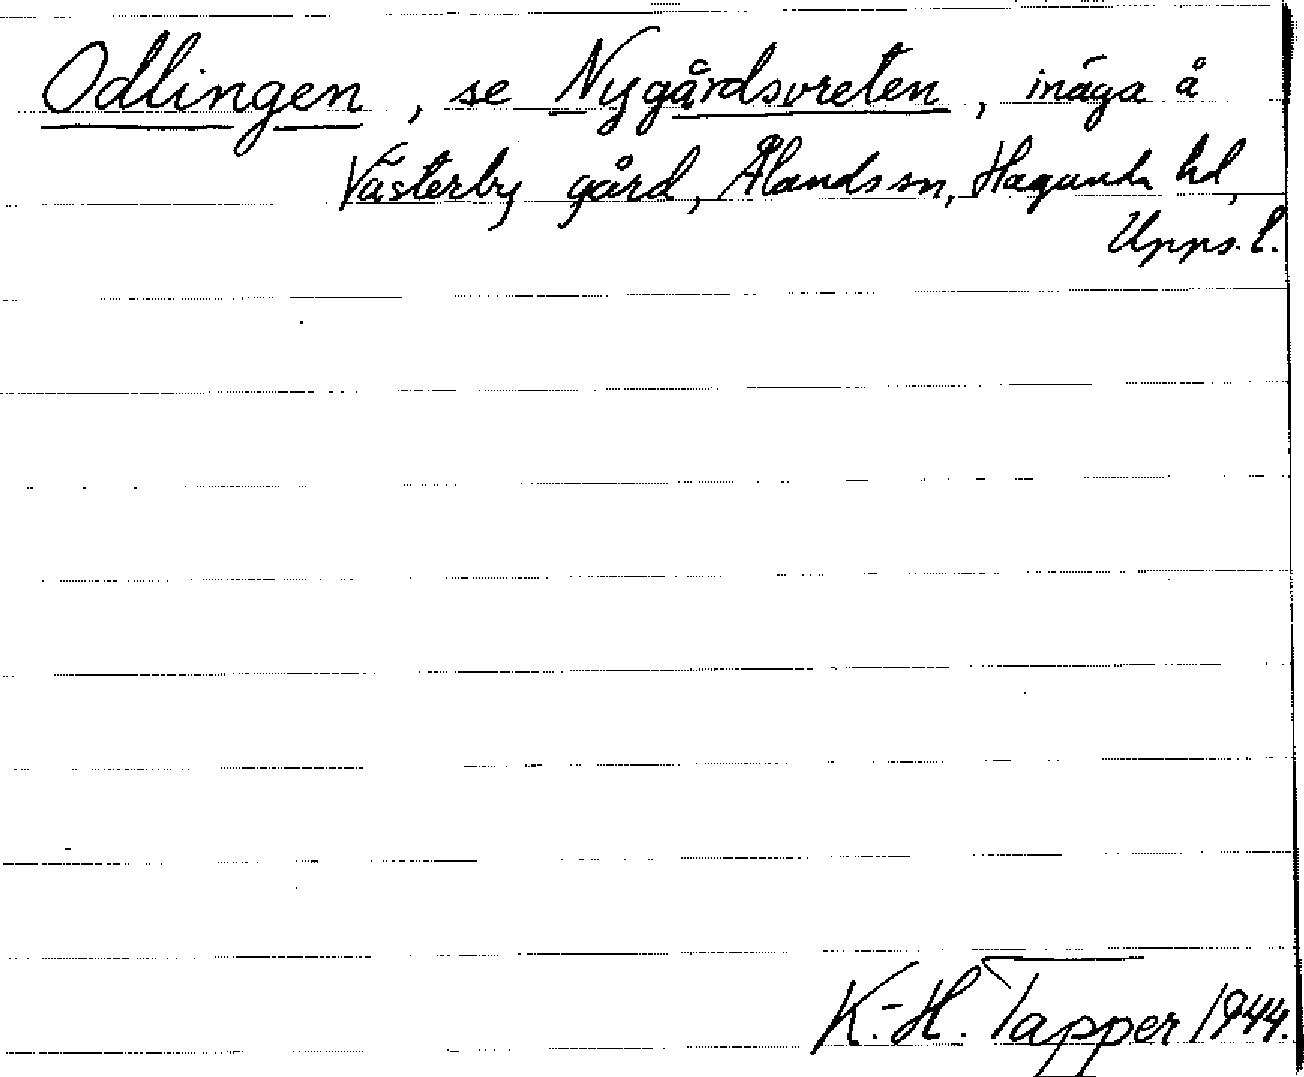 Odlingen, se Nygårdsvreten, inäga å
Västerby gård, Ålands sn, Hagunda hd,
Upps. l.
K.-H. Tapper 1944.